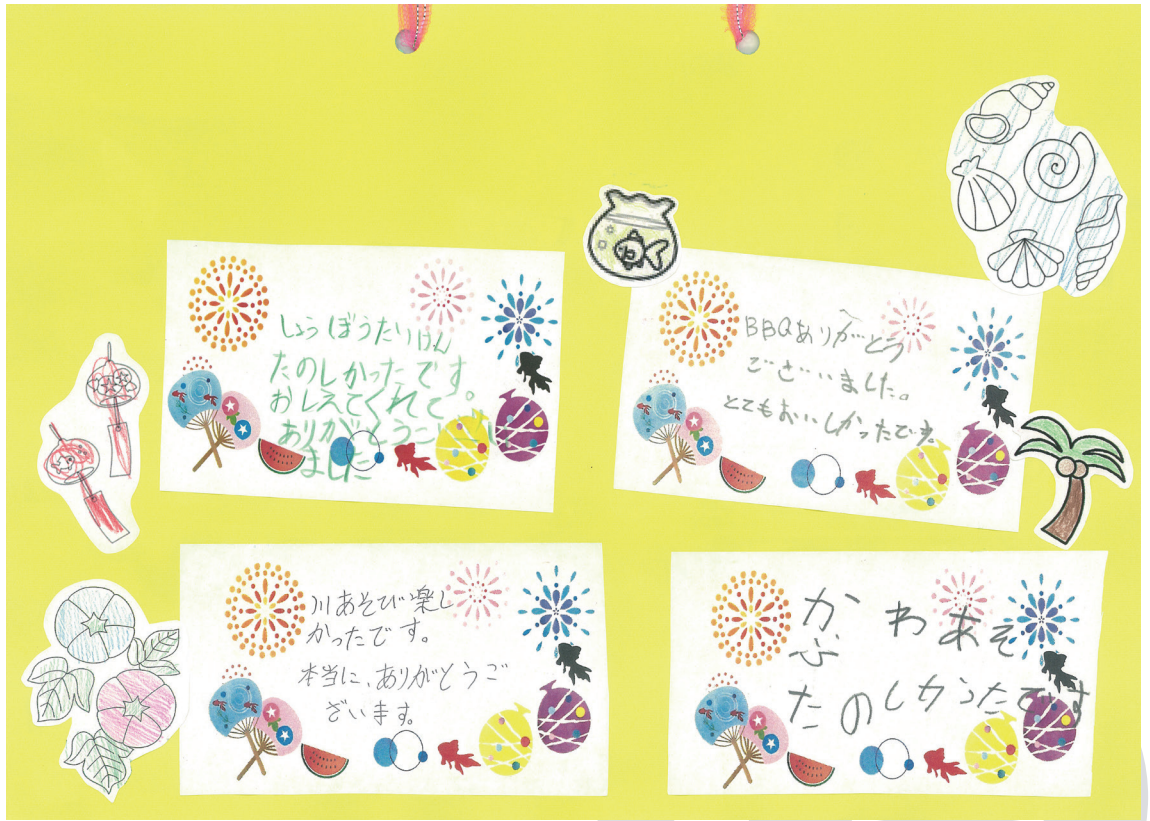 しょうぼうたいけん
たのしかったです
おしえてくれて。
ありがとうござい
ました
BBQありがとう
ございました。
とてもおいしかったです。
川あそび楽し
かったです。
本当に、ありがとうご
ざいます。
かわあそ
び
たのしかったです